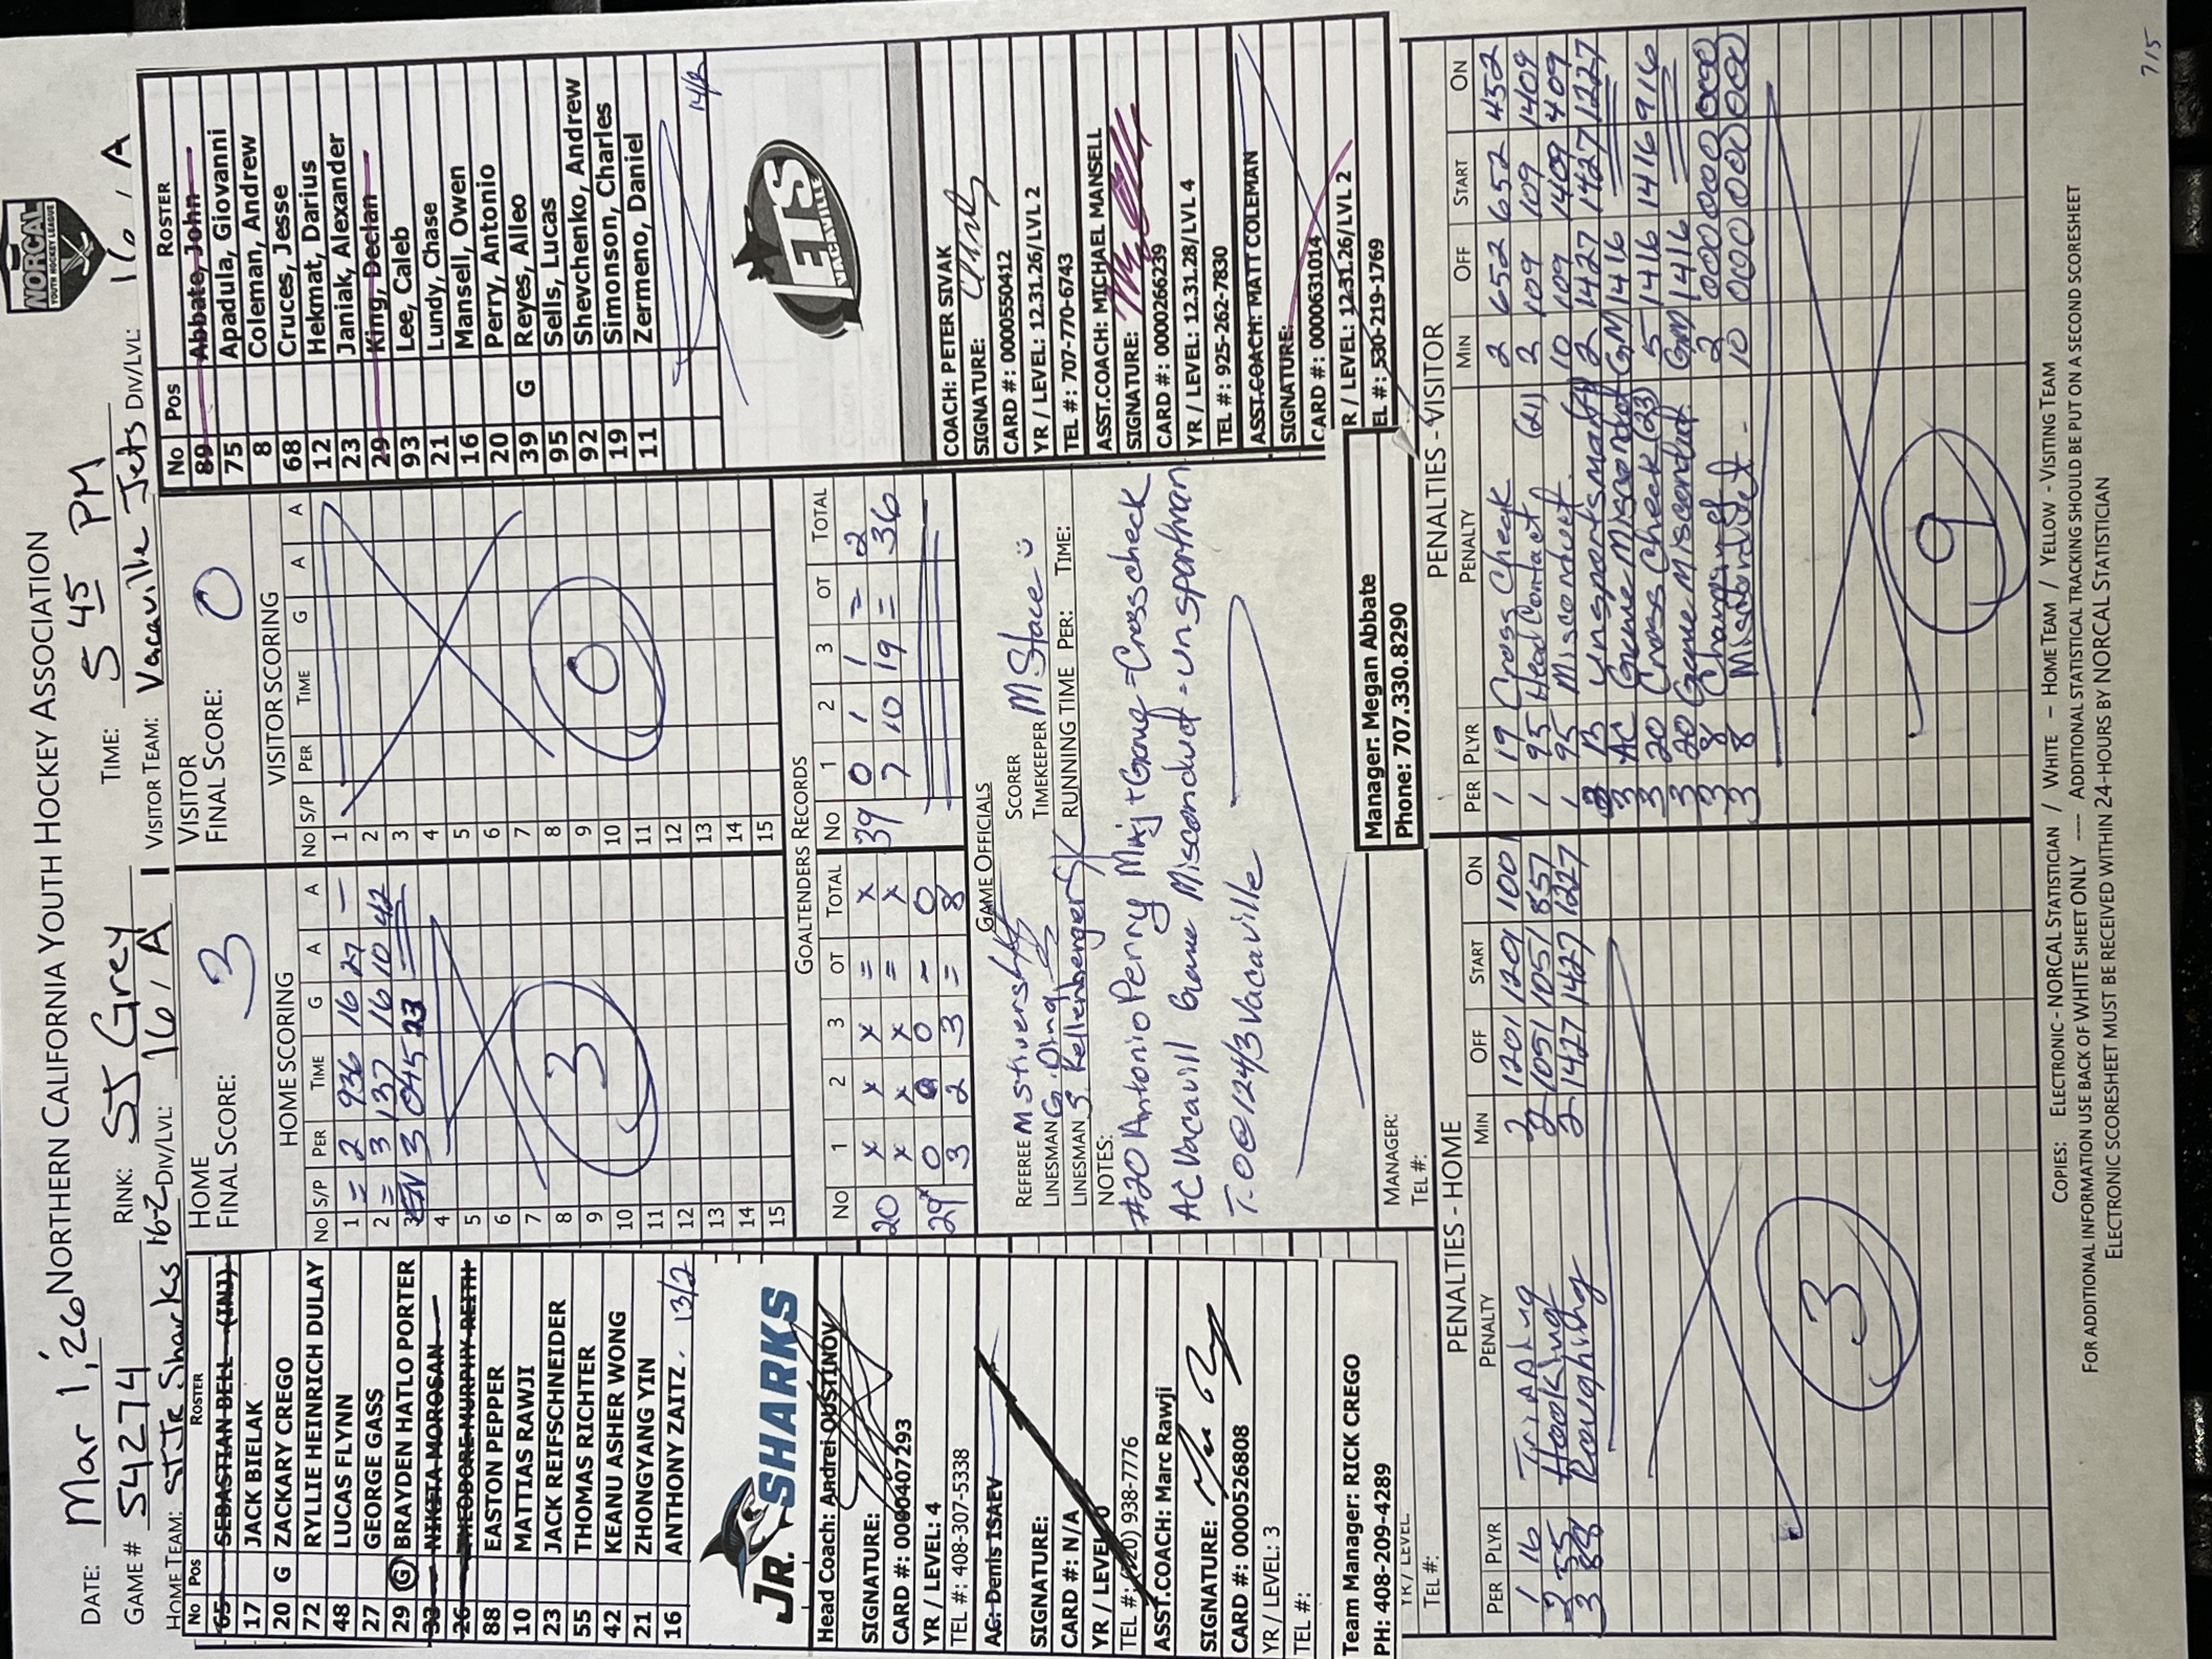 NORCAL
YOUTH HOCKEY LEAGUE
NORTHERN CALIFORNIA YOUTH HOCKEY ASSOCIATION
DATE: Mar 1, '26
RINK: SJ Grey
TIME: 5 45 PM
GAME # 54274
DIV/LVL: 16 / A
HOME TEAM: SJ Jr Sharks 16-2
VISITOR TEAM: Vacaville Jets
DIV/LVL: 16 / A
No Pos ROSTER
65 SEBASTIAN BELL (INJ)
17 JACK BIELAK
20 G ZACKARY CREGO
72 RYLLIE HEINRICH DULAY
48 LUCAS FLYNN
27 GEORGE GASS
29 G BRAYDEN HATLO PORTER
33 NIKITA MOROSAN
26 THEODORE MURPHY REITH
88 EASTON PEPPER
10 MATTIAS RAWJI
23 JACK REIFSCHNEIDER
55 THOMAS RICHTER
42 KEANU ASHER WONG
21 ZHONGYANG YIN
16 ANTHONY ZAITZ 13/2
JR. SHARKS
Head Coach: Andrei OUSTINOV
SIGNATURE:
CARD #: 0000407293
YR / LEVEL: 4
TEL #: 408-307-5338
AC: Denis ISAEV
SIGNATURE:
CARD #: N/A
YR / LEVEL: 0
TEL #: (720) 938-7776
ASST.COACH: Marc Rawji
SIGNATURE:
CARD #: 0000526808
YR / LEVEL: 3
TEL #:
Team Manager: RICK CREGO
PH: 408-209-4289
YR / LEVEL:
TEL #:
HOME
FINAL SCORE: 3
HOME SCORING
No S/P PER TIME G A A
1 = 2 936 16 27 —
2 = 3 137 16 10 42
3 EN 3 045 23
4
5
6
7
8
9
10
11
12
13
14
15
3
VISITOR
FINAL SCORE: 0
VISITOR SCORING
No S/P PER TIME G A A
1
2
3
4
5
6
7
8
9
10
11
12
13
14
15
0
GOALTENDERS RECORDS
No 1 2 3 OT TOTAL No 1 2 3 OT TOTAL
20 x x x = x 39 0 1 1 = 2
x x x = x 7 10 19 = 36
29 0 0 0 - 0
3 2 3 = 8
GAME OFFICIALS
REFEREE M Stivers
SCORER
LINESMAN G. Ding
TIMEKEEPER M Stace
LINESMAN S. Kellenberger SK
RUNNING TIME PER: TIME:
NOTES:
#20 Antonio Perry Maj + Game = Cross check
AC Vacavill Game Misconduct = unsportman
T.O @ 124/3 Vacaville
MANAGER:
TEL #:
Manager: Megan Abbate
Phone: 707.330.8290
No Pos ROSTER
89 Abbate, John
75 Apadula, Giovanni
8 Coleman, Andrew
68 Cruces, Jesse
12 Hekmat, Darius
23 Janiak, Alexander
29 King, Declan
93 Lee, Caleb
21 Lundy, Chase
16 Mansell, Owen
20 Perry, Antonio
39 G Reyes, Alleo
95 Sells, Lucas
92 Shevchenko, Andrew
19 Simonson, Charles
11 Zermeno, Daniel
JETS
VACAVILLE
COACH: PETER SIVAK
SIGNATURE:
CARD #: 0000550412
YR / LEVEL: 12.31.26/LVL 2
TEL #: 707-770-6743
ASST.COACH: MICHAEL MANSELL
SIGNATURE:
CARD #: 0000266239
YR / LEVEL: 12.31.28/LVL 4
TEL #: 925-262-7830
ASST.COACH: MATT COLEMAN
SIGNATURE:
CARD #: 0000631014
R / LEVEL: 12.31.26/LVL 2
EL #: 530-219-1769
PENALTIES - HOME
PER PLYR PENALTY MIN OFF START ON
1 16 2 1201 1201 1001
3 55 Hooking 2 1051 1051 857
3 88 Roughing 2 1427 1427 1227
3
PENALTIES - VISITOR
PER PLYR PENALTY MIN OFF START ON
1 19 Cross Check 2 652 652 452
1 95 Head Contact (21) 2 109 109 1409
1 95 Misconduct 10 109 1409 409
3 B Unsportsman 2 1427 1427 1227
3 AC Game Misconduct GM 1416
3 20 Cross Check (23) 5 1416 1416 916
3 20 Game Misconduct GM 1416
3 8 2 000 000 000
3 8 Misconduct 10 000 000 000
9
COPIES: ELECTRONIC - NORCAL STATISTICIAN / WHITE – HOME TEAM / YELLOW - VISITING TEAM
FOR ADDITIONAL INFORMATION USE BACK OF WHITE SHEET ONLY ---- ADDITIONAL STATISTICAL TRACKING SHOULD BE PUT ON A SECOND SCORESHEET
ELECTRONIC SCORESHEET MUST BE RECEIVED WITHIN 24-HOURS BY NORCAL STATISTICIAN
7/5